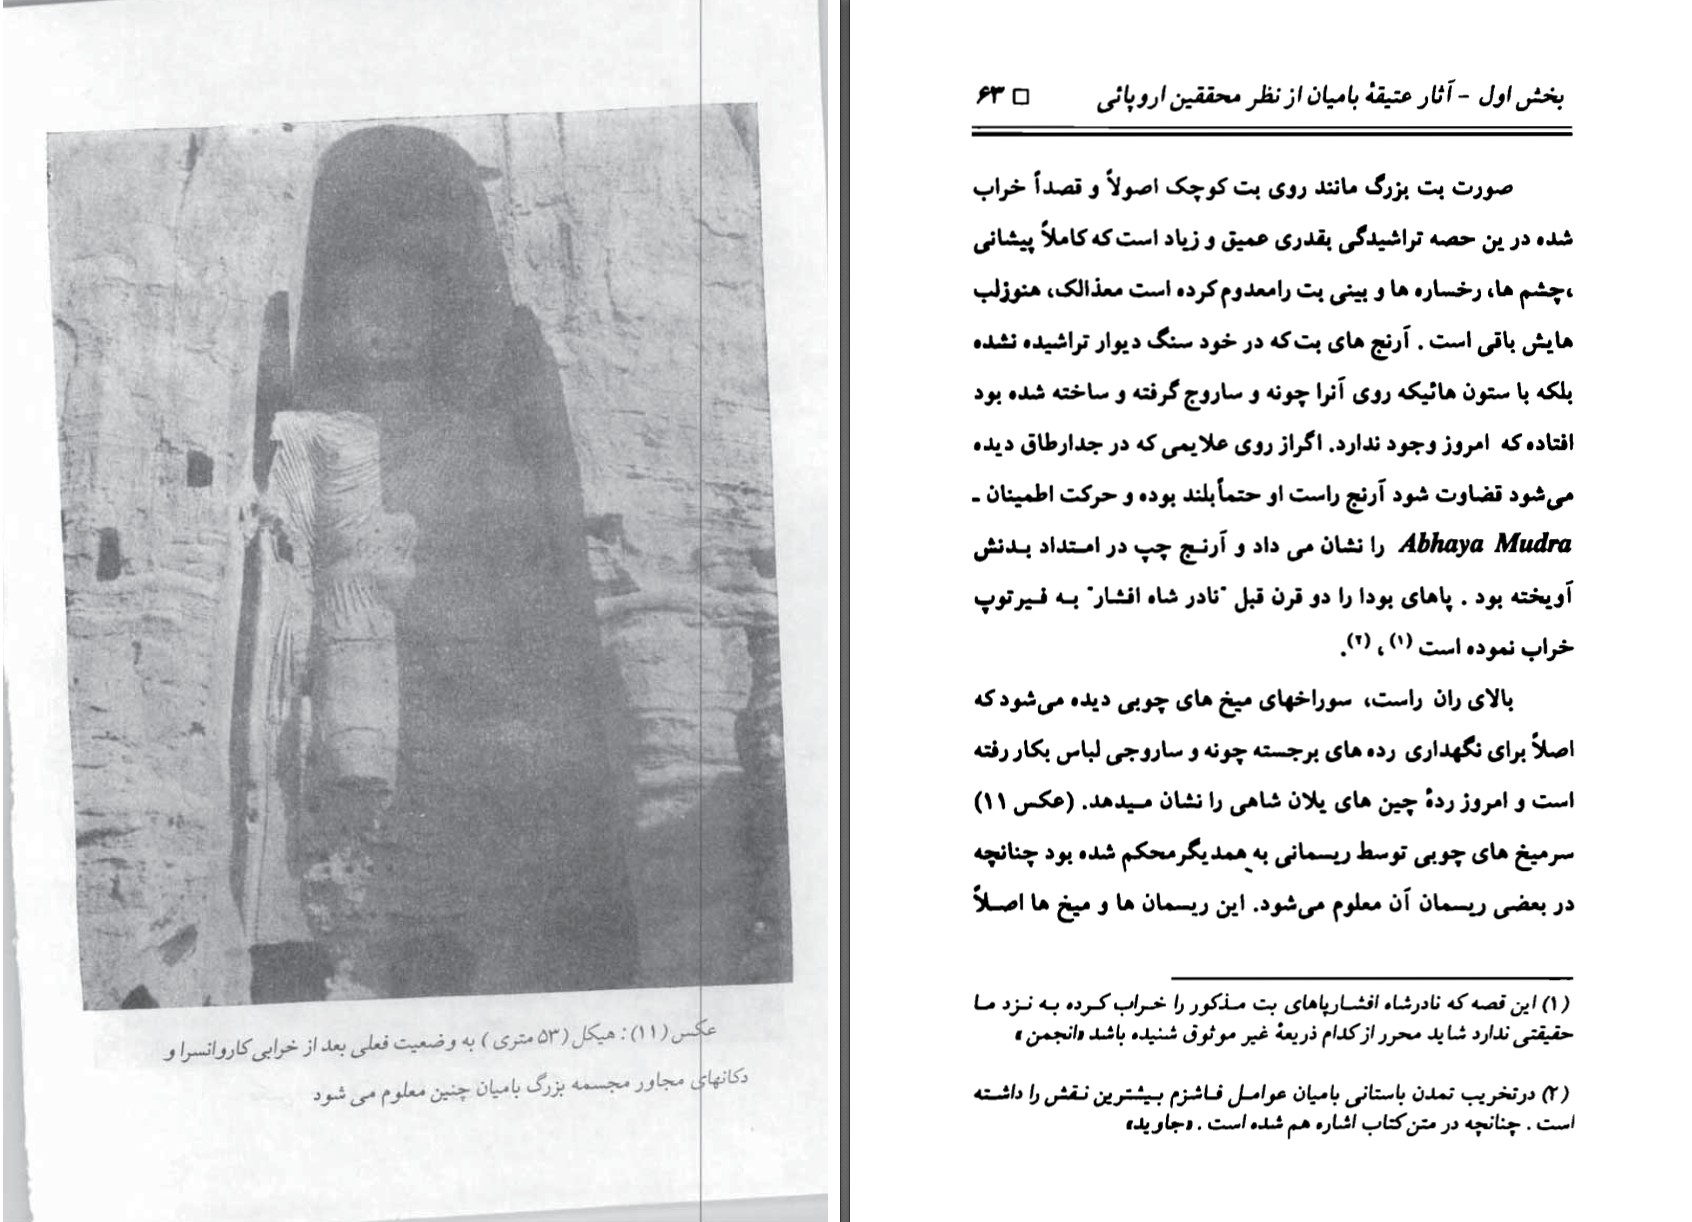 بخش اول - آثار عتیقهٔ بامیان از نظر محققین اروپائی □ ۶۳
صورت بت بزرگ مانند روی بت کوچک اصولاً و قصداً خراب
شده در ین حصه تراشیدگی بقدری عمیق و زیاد است که کاملاً پیشانی
،چشم ها، رخساره ها و بینی بت رامعدوم کرده است معذالک، هنوزلب
هایش باقی است . آرنج های بت که در خود سنگ دیوار تراشیده نشده
بلکه با ستون هائیکه روی آنرا چونه و ساروج گرفته و ساخته شده بود
افتاده که امروز وجود ندارد. اگراز روی علایمی که در جدارطاق دیده
می‌شود قضاوت شود آرنج راست او حتماً بلند بوده و حرکت اطمینان ـ
Abhaya Mudra را نشان می داد و آرنج چپ در امتداد بدنش
آویخته بود . پاهای بودا را دو قرن قبل "نادر شاه افشار" به فیرتوپ
خراب نموده است (۱) ، (۲).
بالای ران راست، سوراخهای میخ های چوبی دیده می‌شود که
اصلاً برای نگهداری رده های برجسته چونه و ساروجی لباس بکار رفته
است و امروز ردهٔ چین های یلان شاهی را نشان میدهد. (عکس ۱۱)
سرمیخ های چوبی توسط ریسمانی به همدیگرمحکم شده بود چنانچه
در بعضی ریسمان آن معلوم می‌شود. این ریسمان ها و میخ ها اصلاً
(۱) این قصه که نادرشاه افشارپاهای بت مذکور را خراب کرده به نزد ما
حقیقتی ندارد شاید محرر از کدام ذریعهٔ غیر موثوق شنیده باشد «انجمن»
(۲) درتخریب تمدن باستانی بامیان عوامل فاشزم بیشترین نقش را داشته
است . چنانچه در متن کتاب اشاره هم شده است . «جاوید»
عکس (۱۱) : هیکل (۵۳ متری ) به وضعیت فعلی بعد از خرابی کاروانسرا و
دکانهای مجاور مجسمه بزرگ بامیان چنین معلوم می شود